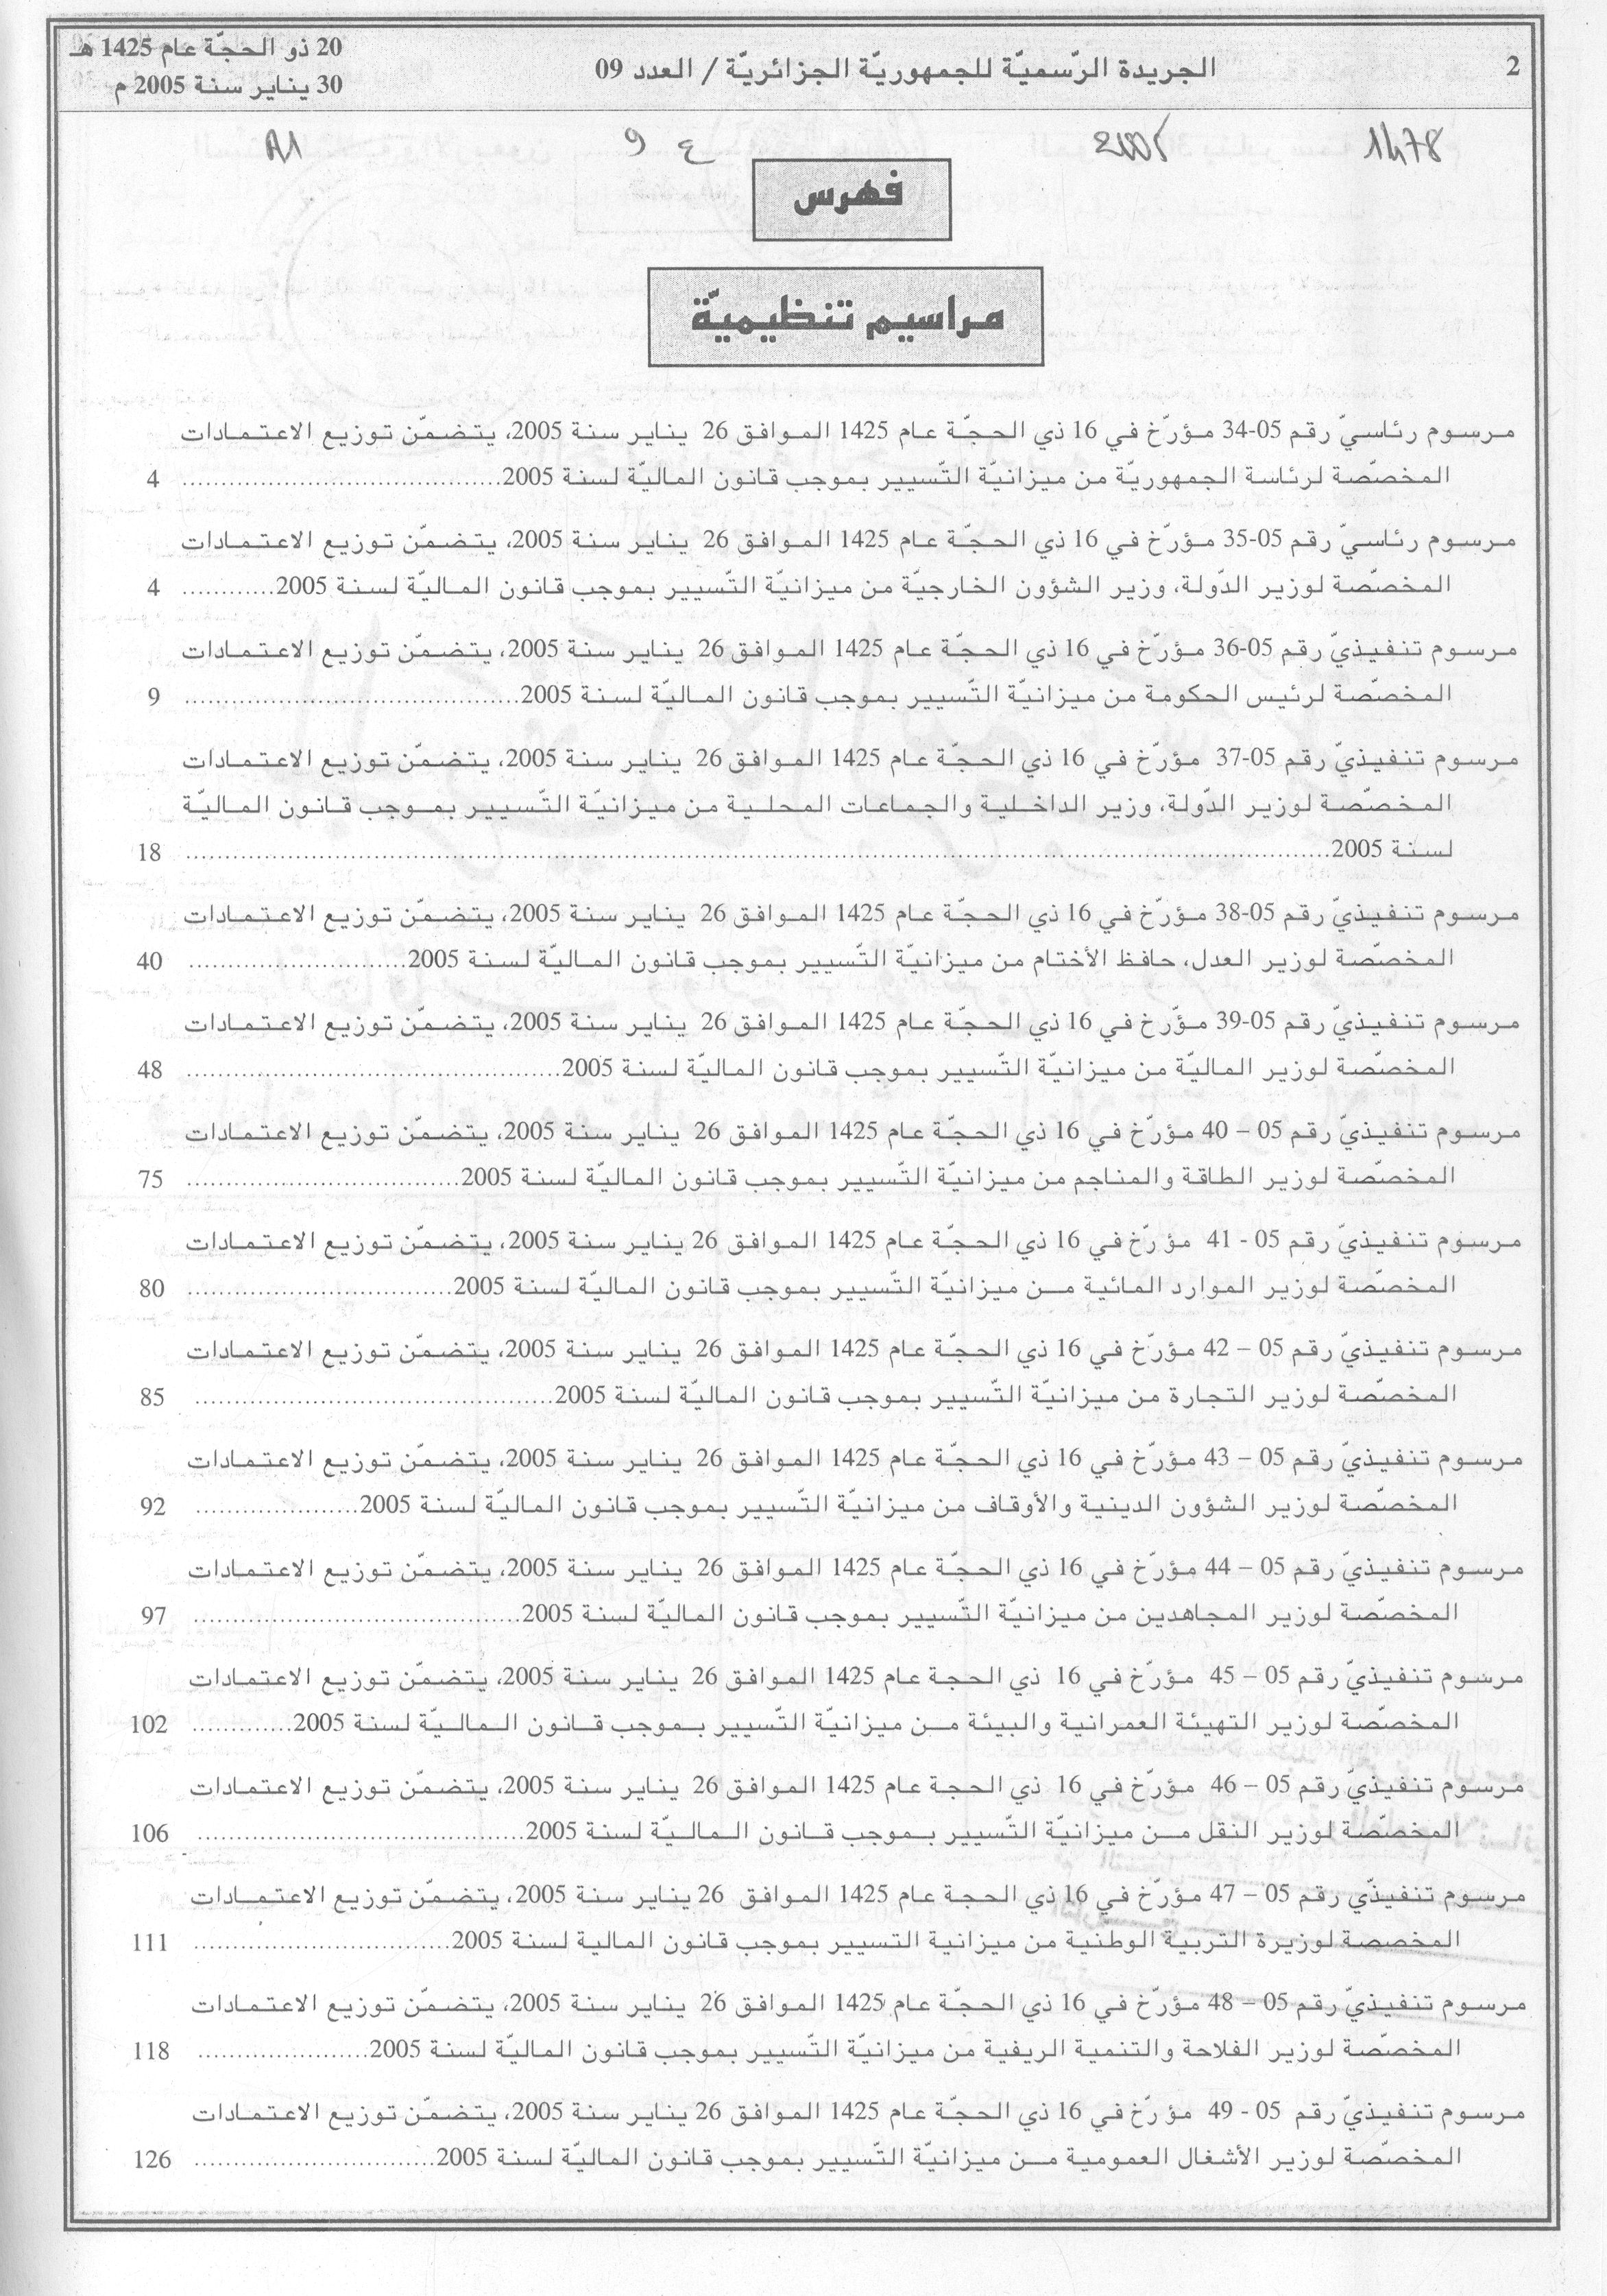 2
الجريدة الرّسميّة للجمهوريّة الجزائريّة / العدد 09
20 ذو الحجّة عام 1425 هـ
30 يناير سنة 2005 م
1478 2005 ع 9 A1
فهرس
مراسيم تنظيميّة
مرسوم رئاسيّ رقم 05-34 مؤرّخ في 16 ذي الحجّة عام 1425 الموافق 26 يناير سنة 2005، يتضمّن توزيع الاعتمادات
المخصّصة لرئاسة الجمهوريّة من ميزانيّة التّسيير بموجب قانون الماليّة لسنة 2005 ........ 4
مرسوم رئاسيّ رقم 05-35 مؤرّخ في 16 ذي الحجّة عام 1425 الموافق 26 يناير سنة 2005، يتضمّن توزيع الاعتمادات
المخصّصة لوزير الدّولة، وزير الشؤون الخارجيّة من ميزانيّة التّسيير بموجب قانون الماليّة لسنة 2005 ........ 4
مرسوم تنفيذيّ رقم 05-36 مؤرّخ في 16 ذي الحجّة عام 1425 الموافق 26 يناير سنة 2005، يتضمّن توزيع الاعتمادات
المخصّصة لرئيس الحكومة من ميزانيّة التّسيير بموجب قانون الماليّة لسنة 2005 ........ 9
مرسوم تنفيذيّ رقم 05-37 مؤرّخ في 16 ذي الحجّة عام 1425 الموافق 26 يناير سنة 2005، يتضمّن توزيع الاعتمادات
المخصّصة لوزير الدّولة، وزير الداخلية والجماعات المحلية من ميزانيّة التّسيير بموجب قانون الماليّة
لسنة 2005 ........ 18
مرسوم تنفيذيّ رقم 05-38 مؤرّخ في 16 ذي الحجّة عام 1425 الموافق 26 يناير سنة 2005، يتضمّن توزيع الاعتمادات
المخصّصة لوزير العدل، حافظ الأختام من ميزانيّة التّسيير بموجب قانون الماليّة لسنة 2005 ........ 40
مرسوم تنفيذيّ رقم 05-39 مؤرّخ في 16 ذي الحجّة عام 1425 الموافق 26 يناير سنة 2005، يتضمّن توزيع الاعتمادات
المخصّصة لوزير الماليّة من ميزانيّة التّسيير بموجب قانون الماليّة لسنة 2005 ........ 48
مرسوم تنفيذيّ رقم 05 – 40 مؤرّخ في 16 ذي الحجّة عام 1425 الموافق 26 يناير سنة 2005، يتضمّن توزيع الاعتمادات
المخصّصة لوزير الطاقة والمناجم من ميزانيّة التّسيير بموجب قانون الماليّة لسنة 2005 ........ 75
مرسوم تنفيذيّ رقم 05 - 41 مؤرّخ في 16 ذي الحجّة عام 1425 الموافق 26 يناير سنة 2005، يتضمّن توزيع الاعتمادات
المخصّصة لوزير الموارد المائية من ميزانيّة التّسيير بموجب قانون الماليّة لسنة 2005 ........ 80
مرسوم تنفيذيّ رقم 05 – 42 مؤرّخ في 16 ذي الحجّة عام 1425 الموافق 26 يناير سنة 2005، يتضمّن توزيع الاعتمادات
المخصّصة لوزير التجارة من ميزانيّة التّسيير بموجب قانون الماليّة لسنة 2005 ........ 85
مرسوم تنفيذيّ رقم 05 – 43 مؤرّخ في 16 ذي الحجّة عام 1425 الموافق 26 يناير سنة 2005، يتضمّن توزيع الاعتمادات
المخصّصة لوزير الشؤون الدينية والأوقاف من ميزانيّة التّسيير بموجب قانون الماليّة لسنة 2005 ........ 92
مرسوم تنفيذيّ رقم 05 – 44 مؤرّخ في 16 ذي الحجّة عام 1425 الموافق 26 يناير سنة 2005، يتضمّن توزيع الاعتمادات
المخصّصة لوزير المجاهدين من ميزانيّة التّسيير بموجب قانون الماليّة لسنة 2005 ........ 97
مرسوم تنفيذيّ رقم 05 – 45 مؤرّخ في 16 ذي الحجة عام 1425 الموافق 26 يناير سنة 2005، يتضمّن توزيع الاعتمادات
المخصّصة لوزير التهيئة العمرانية والبيئة من ميزانيّة التّسيير بموجب قانون الماليّة لسنة 2005 ........ 102
مرسوم تنفيذيّ رقم 05 – 46 مؤرّخ في 16 ذي الحجة عام 1425 الموافق 26 يناير سنة 2005، يتضمّن توزيع الاعتمادات
المخصّصة لوزير النقل من ميزانيّة التّسيير بموجب قانون الماليّة لسنة 2005 ........ 106
مرسوم تنفيذّي رقم 05 – 47 مؤرّخ في 16 ذي الحجة عام 1425 الموافق 26 يناير سنة 2005، يتضمّن توزيع الاعتمادات
المخصصة لوزيرة التربية الوطنية من ميزانية التسيير بموجب قانون المالية لسنة 2005 ........ 111
مرسوم تنفيذيّ رقم 05 – 48 مؤرّخ في 16 ذي الحجّة عام 1425 الموافق 26 يناير سنة 2005، يتضمّن توزيع الاعتمادات
المخصّصة لوزير الفلاحة والتنمية الريفية من ميزانيّة التّسيير بموجب قانون الماليّة لسنة 2005 ........ 118
مرسوم تنفيذيّ رقم 05 - 49 مؤرّخ في 16 ذي الحجّة عام 1425 الموافق 26 يناير سنة 2005، يتضمّن توزيع الاعتمادات
المخصّصة لوزير الأشغال العمومية من ميزانيّة التّسيير بموجب قانون الماليّة لسنة 2005 ........ 126